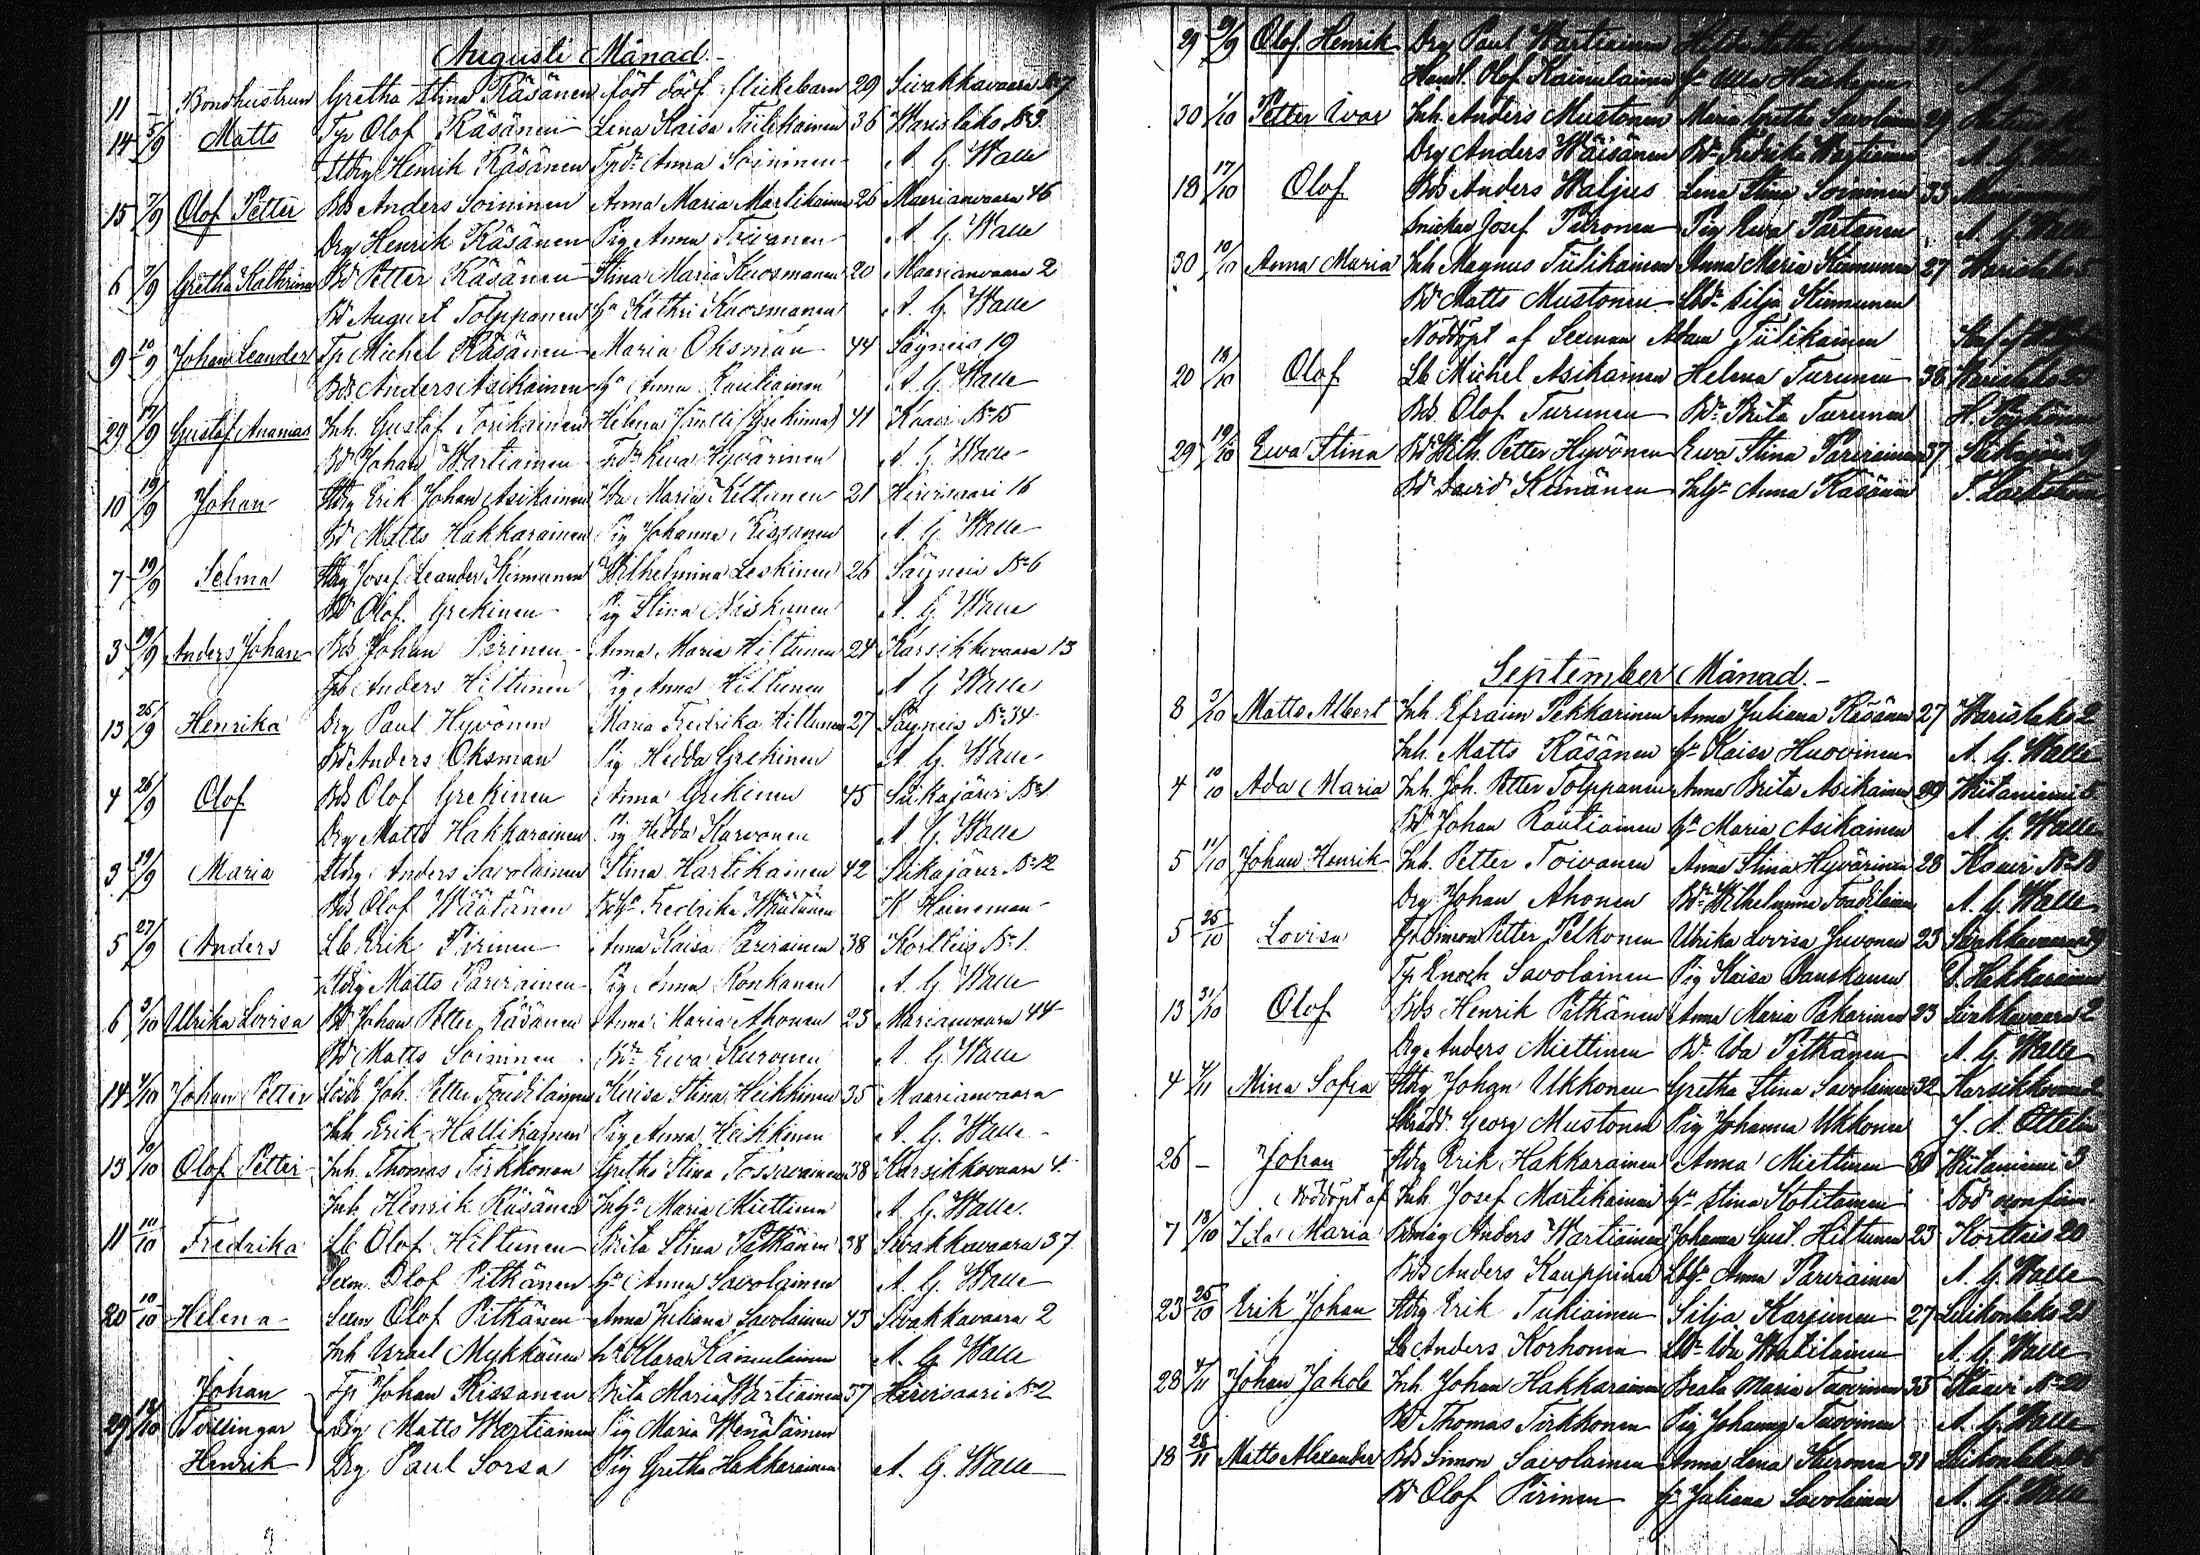 Augusti Månad.
11 Bondhustrun Gretha Stina Räsänen född dödf. flickebarn 29 Sivakkavaara 7
14 5/9 Matts Tp Olof Räsänen Lena Kaisa Tiilikainen 36 Warislaks No 3
Stdrg Henrik Räsänen Tpdr Anna Soininen A. G. Walle
15 7/9 Olof Petter Bds Anders Soininen Anna Maria Martikainen 26 Maarianvaara 46
Drg Henrik Räsänen Pig Anna Toivanen A. G. Walle
6 7/9 Gretha Kathrina Bd Petter Räsänen Stina Maria Kuosmanen 20 Maarianvaara 2
Bd August Tolppanen Ha Kathri Kuosmanen A. G. Walle
9 10/9 Johan Leander Tp Michel Räsänen Maria Oksman 44 Säyneis 19
Bds Anders Asikainen Ha Anna Rautiainen A. G. Walle
29 17/9 Gustaf Ananias Inh. Gustaf Torikainen Helena Jäntti (Grekinen) 41 Kaavi No 15
Bd Johan Wartiainen Ewa Hyvärinen A. G. Walle
10 19/9 Johan Stdrg Erik Johan Asikainen Ida Maria Kettunen 21 Hirvisaari 16
Bd Matts Hakkarainen Pig Johanna Rissanen A. G. Walle
7 19/9 Selma Stdrg Josef Leander Kinnunen Wilhelmina Leskinen 26 Säyneis No 6
Bd Olof Grekinen Pig Stina Niskanen A. G. Walle
3 19/9 Anders Johan Bds Johan Pirinen Anna Maria Hiltunen 24 Karsikkovaara 13
Anders Hiltunen Pig Anna Hiltunen A. G. Walle
13 25/9 Henrika Drg Paul Hyvönen Maria Fredrika Hiltunen 27 Säyneis No 34
Bd Anders Oksman Pig Hedda Grekinen A. G. Walle
4 26/9 Olof Bds Olof Grekinen Anna Grekinen 45 Siikajärvi No 1
Drg Matts Hakkarainen Pig Hedda Karvonen A. G. Walle
3 19/9 Maria Stdrg Anders Savolainen Stina Hartikainen 42 Siikajärvi No 12
Bds Olof Wäätänen Fredrika Wäätänen K Heineman
5 27/9 Anders Lb Erik Pirinen Anna Kaisa Parviainen 38 Kortteis No 1.
Stdrg Matts Parviainen Pig Anna Ronkanen A. G. Walle
6 3/10 Ulrika Lovisa Bd Johan Petter Räsänen Anna Maria Ahonen 23 Marianvaara 44
Bd Matts Soininen Bdr Ewa Kuronen A. G. Walle
14 4/10 Johan Petter Joh. Petter Stina Heikkinen 35 Maarianvaara
Inh. Erik Hallikainen Pig Anna Heikkinen A. G. Walle
13 10/10 Olof Petter Inh. Thomas Tirkkonen Gretha Stina Tossavainen 38 Karsikkovaara 4.
Inh. Henrik Räsänen Inha Maria Miettinen A. G. Walle.
11 10/10 Fredrika Lb Olof Hiltunen Brita Stina Pitkänen 38 Sivakkavaara 37
Sexm. Olof Pitkänen Ha Anna Savolainen A. G. Walle
20 10/10 Helena Sexm Olof Pitkänen Anna Juliana Savolainen 43 Sivakkavaara 2
Inh Israel Mykkänen Ha Klara Kainulainen A. G. Walle
Johan Tp Johan Rissanen Brita Maria Wartiainen 37 Hirvisaari No 2
29 12/10 Tvillingar Drg Matts Wartiainen Pig Maria Wenäläinen
Henrik Drg Paul Sorsa Pig Gretha Hakkarainen A. G. Walle
29 Olof Henrik Drg Paul Wartiainen
Handl. Olof Kainulainen Ha Ulla Heiskanen
30 1/10 Petter Ivar Inh. Anders Mustonen Maria Gretha Savolainen 29
Drg Anders Wäisänen Bdr Fredrika Wartiainen A. G. Walle
18 17/10 Olof Bds Anders Waljus Lena Stina Soininen 33
Snickar Josef Petronen Pig Ewa Partanen A. G. Walle
30 10/10 Anna Maria Inh Magnus Tiilikainen Anna Maria Kinnunen 27 Warislaks
Bd Matts Mustonen Lbdr Silja Kinnunen
Nöddöpt af Sexman Adam Tiilikainen
20 13/10 Olof Lb Michel Asikainen Helena Turunen 38 Warislaks
Bds Olof Turunen Bdr Brita Turunen
29 19/10 Ewa Stina Bd Wilh. Petter Hyvönen Ewa Stina Parviainen 37 Siikajärvi 9
Bd David Keinänen Inha Anna Räsänen
September Månad.
8 2/10 Matts Albert Inh. Efraim Pekkarinen Anna Juliana Räsänen 27 Warislaks 2
Inh. Matts Räsänen Ha Kaisa Huovinen A. G. Walle
4 10/10 Ada Maria Inh. Joh. Petter Tolppanen Anna Brita Asikainen 29 Wiitaniemi 5
Bd Johan Rautiainen Ha Maria Asikainen A. G. Walle
5 11/10 Johan Henrik Inh. Petter Toivanen Anna Stina Hyvärinen 28 Kaavi No 18
Drg Johan Ahonen Bdr Wilhelmina A. G. Walle
5 25/10 Lovisa Tp Simon Petter Pelkonen Ulrika Lovisa Juvonen 23 Sivakkavaara
Tp Enoch Savolainen Pig Kaisa Danskanen Hakkarainen
13 31/10 Olof Bds Henrik Pitkänen Anna Maria Pakarinen 23 Sivakkavaara 2
Drg Anders Miettinen Bdr Ida Pitkänen A. G. Walle
4 4/11 Mina Sofia Stdrg Johan Ukkonen Gretha Stina Savolainen 32 Karsikkovaara 2
Skrädd. Georg Mustonen Pig Johanna Ukkonen J. A. Ottelin
26 – Johan Stdrg Erik Hakkarainen Anna Miettinen 30 Wiitaniemi 3
Nöddöpt af Inh. Josef Martikainen Ha Stina Kotilainen Död
7 18/10 Ida Maria Bdmåg Anders Wartiainen Johanna Gust. Hiltunen 23 Kortteis 20
Bds Anders Kauppinen Lbha Anna Parviainen A. G. Walle
23 25/10 Erik Johan Stdrg Erik Tukiainen Silja Karjunen 27 Leikonlaks 21
Lb Anders Korhonen Lbdr Ida Watilainen A. G. Walle
28 4/11 Johan Jakob Inh. Johan Hakkarainen Beata Maria Tuovinen 35 Kaavi No 20
Bd Thomas Tirkkonen Pig Johanna Tuovinen A. G. Walle
18 28/11 Matts Alexander Bds Simon Savolainen Anna Lena Kuronen 31
Bd Olof Pirinen Ha Juliana Savolainen A. G. Walle